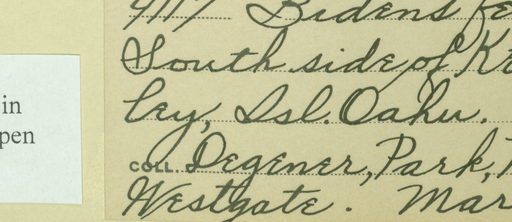 in
pen
Bidens fe
South side of K
ley, Isl. Oahu.
COLL. Degener, Park,
Westgate. Mar